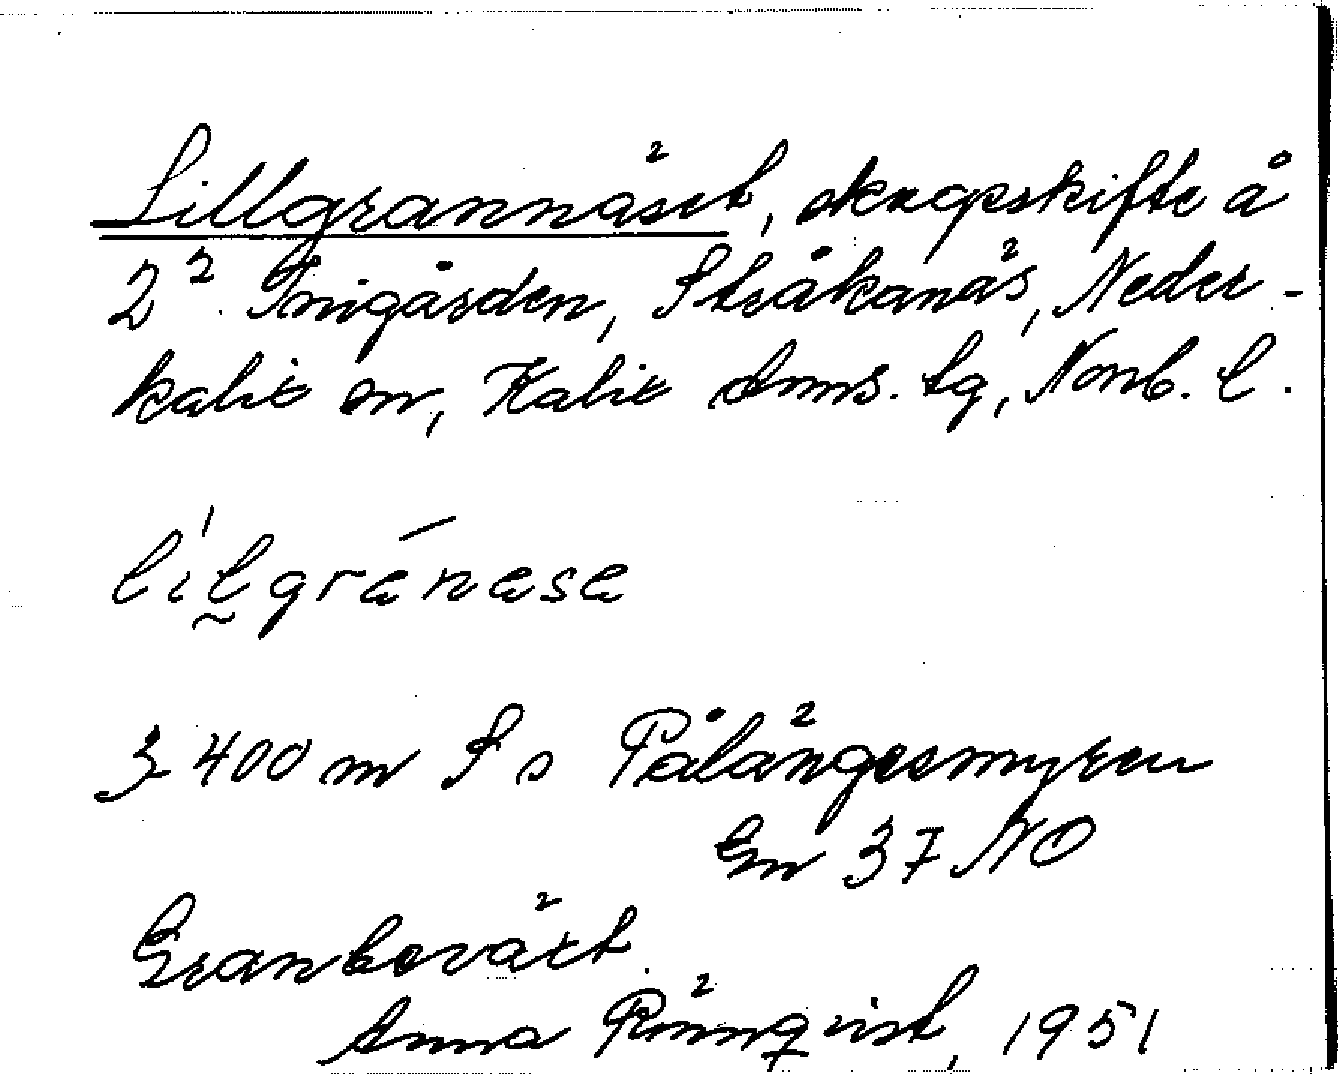 Lillgrannäset, skogsskifte å
2² Tnigården, Stråkanäs, Neder-
kalix sn, Kalix doms. lg, Norrb. l.
lílgránæsa
3 400 m S s Pålängesmyren
Gn 37 NO
Granbeväxt.
Anna Rönnqvist, 1951